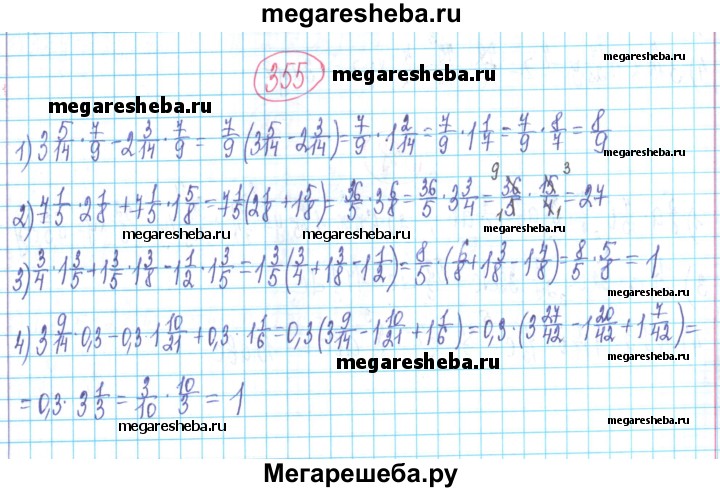 megaresheba.ru
355 megaresheba.ru megaresheba.ru
megaresheba.ru
1) 3 5/14 · 7/9 - 2 3/14 · 7/9 = 7/9 (3 5/14 - 2 3/14) = 7/9 · 1 2/14 = 7/9 · 1 1/7 = 7/9 · 8/7 = 8/9
2) 7 1/5 · 2 1/8 + 7 1/5 · 1 5/8 = 7 1/5 (2 1/8 + 1 5/8) = 36/5 · 3 6/8 = 36/5 · 3 3/4 = 9 36/5 1 · 15 3/4 1 = 27
megaresheba.ru megaresheba.ru megaresheba.ru
3) 3/4 · 1 3/5 + 1 3/5 · 1 3/8 - 1 1/2 · 1 3/5 = 1 3/5 (3/4 + 1 3/8 - 1 1/2) = 8/5 · (6/8 + 1 3/8 - 1 4/8) = 8/5 · 5/8 = 1
megaresheba.ru
4) 3 9/14 · 0,3 - 0,3 · 1 10/21 + 0,3 · 1 1/6 = 0,3 (3 9/14 - 1 10/21 + 1 1/6) = 0,3 · (3 27/42 - 1 20/42 + 1 7/42) =
megaresheba.ru
= 0,3 · 3 1/3 = 3/10 · 10/3 = 1
megaresheba.ru megaresheba.ru
Мегарешеба.ру